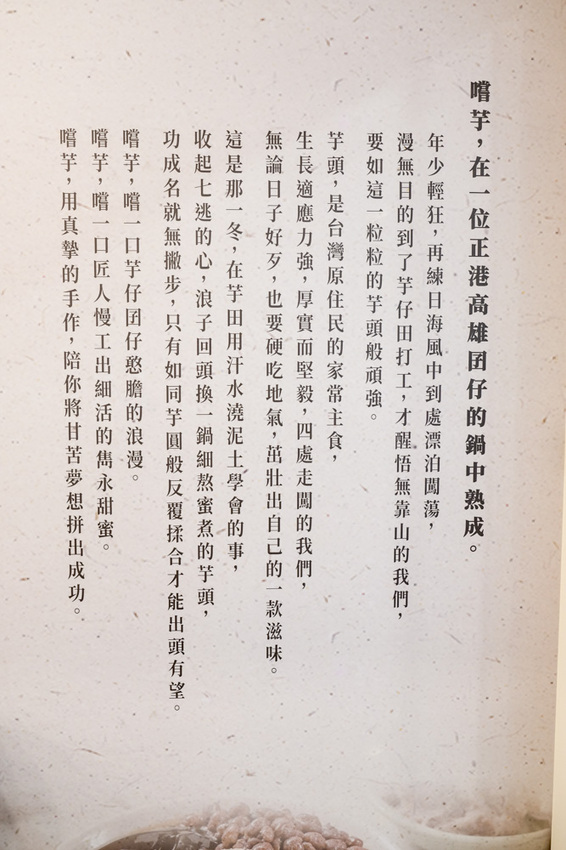 嚐芋，在一位正港高雄囝仔的鍋中熟成。
年少輕狂，再練日海風中到處漂泊闖蕩，
漫無目的到了芋仔田打工，才醒悟無靠山的我們，
要如這一粒粒的芋頭般頑強。
芋頭，是台灣原住民的家常主食，
生長適應力強，厚實而堅毅，四處走闖的我們，
無論日子好歹，也要硬吃地氣，茁壯出自己的一款滋味。
這是那一冬，在芋田用汗水澆泥土學會的事，
收起七逃的心，浪子回頭換一鍋細熬蜜煮的芋頭，
功成名就無撇步，只有如同芋圓般反覆揉合才能出頭有望。
嚐芋，嚐一口芋仔囝仔憨膽的浪漫。
嚐芋，嚐一口匠人慢工出細活的雋永甜蜜。
嚐芋，用真摯的手作，陪你將甘苦夢想拼出成功。